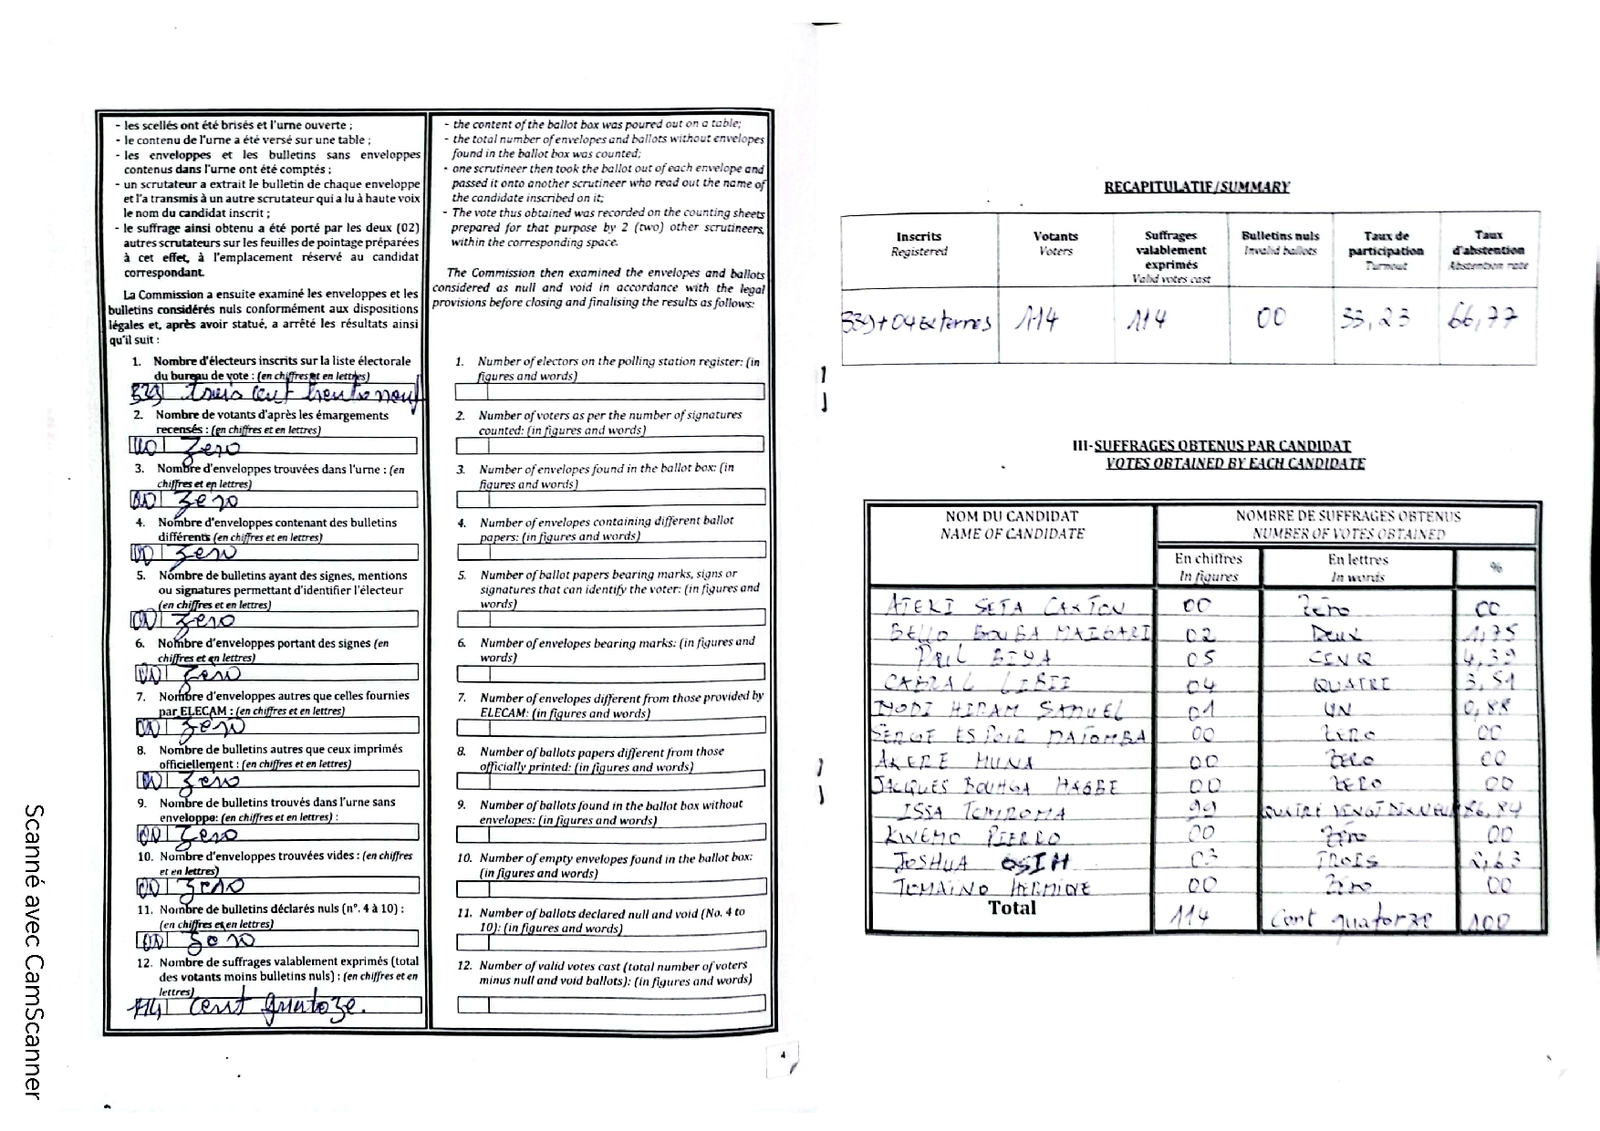 - les scellés ont été brisés et l'urne ouverte ;
- le contenu de l'urne a été versé sur une table ;
- les enveloppes et les bulletins sans enveloppes
contenus dans l'urne ont été comptés ;
- un scrutateur a extrait le bulletin de chaque enveloppe
et l'a transmis à un autre scrutateur qui a lu à haute voix
le nom du candidat inscrit ;
- le suffrage ainsi obtenu a été porté par les deux (02)
autres scrutateurs sur les feuilles de pointage préparées
à cet effet, à l'emplacement réservé au candidat
correspondant.
La Commission a ensuite examiné les enveloppes et les
bulletins considérés nuls conformément aux dispositions
légales et, après avoir statué, a arrêté les résultats ainsi
qu'il suit :
1. Nombre d'électeurs inscrits sur la liste électorale
du bureau de vote : (en chiffres et en lettres)
339 trois cent trente nouf
2. Nombre de votants d'après les émargements
recensés : (en chiffres et en lettres)
zero
3. Nombre d'enveloppes trouvées dans l'urne : (en
chiffres et en lettres)
00 zero
4. Nombre d'enveloppes contenant des bulletins
différents (en chiffres et en lettres)
00 zero
5. Nombre de bulletins ayant des signes, mentions
ou signatures permettant d'identifier l'électeur
(en chiffres et en lettres)
00 zero
6. Nombre d'enveloppes portant des signes (en
chiffres et en lettres)
00 zero
7. Nombre d'enveloppes autres que celles fournies
par ELECAM : (en chiffres et en lettres)
00 zero
8. Nombre de bulletins autres que ceux imprimés
officiellement : (en chiffres et en lettres)
00 zero
9. Nombre de bulletins trouvés dans l'urne sans
enveloppe: (en chiffres et en lettres) :
00 zero
10. Nombre d'enveloppes trouvées vides : (en chiffres
et en lettres)
00 zero
11. Nombre de bulletins déclarés nuls (n°. 4 à 10) :
(en chiffres et en lettres)
00 zero
12. Nombre de suffrages valablement exprimés (total
des votants moins bulletins nuls) : (en chiffres et en
lettres)
114 cent quatoze.
- the content of the ballot box was poured out on a table;
- the total number of envelopes and ballots without envelopes
found in the ballot box was counted;
- one scrutineer then took the ballot out of each envelope and
passed it onto another scrutineer who read out the name of
the candidate inscribed on it;
- The vote thus obtained was recorded on the counting sheets
prepared for that purpose by 2 (two) other scrutineers,
within the corresponding space.
The Commission then examined the envelopes and ballots
considered as null and void in accordance with the legal
provisions before closing and finalising the results as follows:
1. Number of electors on the polling station register: (in
figures and words)
2. Number of voters as per the number of signatures
counted: (in figures and words)
3. Number of envelopes found in the ballot box: (in
figures and words)
4. Number of envelopes containing different ballot
papers: (in figures and words)
5. Number of ballot papers bearing marks, signs or
signatures that can identify the voter: (in figures and
words)
6. Number of envelopes bearing marks: (in figures and
words)
7. Number of envelopes different from those provided by
ELECAM: (in figures and words)
8. Number of ballots papers different from those
officially printed: (in figures and words)
9. Number of ballots found in the ballot box without
envelopes: (in figures and words)
10. Number of empty envelopes found in the ballot box:
(in figures and words)
11. Number of ballots declared null and void (No. 4 to
10): (in figures and words)
12. Number of valid votes cast (total number of voters
minus null and void ballots): (in figures and words)
4
RECAPITULATIF/SUMMARY
Inscrits Registered Votants Voters Suffrages valablement exprimés Valid votes cast Bulletins nuls Invalid ballots Taux de participation Turnout Taux d'abstention Abstention rate
339+04 Externes 114 114 00 33,23 66,77
III-SUFFRAGES OBTENUS PAR CANDIDAT
VOTES OBTAINED BY EACH CANDIDATE
NOM DU CANDIDAT NOMBRE DE SUFFRAGES OBTENUS
NAME OF CANDIDATE NUMBER OF VOTES OBTAINED
En chiffres En lettres %
In figures In words
ATEKI SETA CAXTON 00 Zéro 00
BELLO BOUBA MAIGARI 02 Deux 1,75
PAUL BIYA 05 CINQ 4,39
CABRAL LIBII 04 QUATRE 3,51
MODI HIRAM SAMUEL 01 UN 0,88
SERGE ESPOIR MATOMBA 00 ZERO 00
AKERE MUNA 00 ZERO 00
JACQUES BOUHGA HAGBE 00 ZERO 00
ISSA TCHIROMA 99 86,84
KWEMO PIERRO 00 Zéro 00
JOSHUA OSIH 03 TROIS 2,63
TOMAINO HERMINE 00 Zéro 00
Total 114 Cent quatorze 100
Scanné avec CamScanner